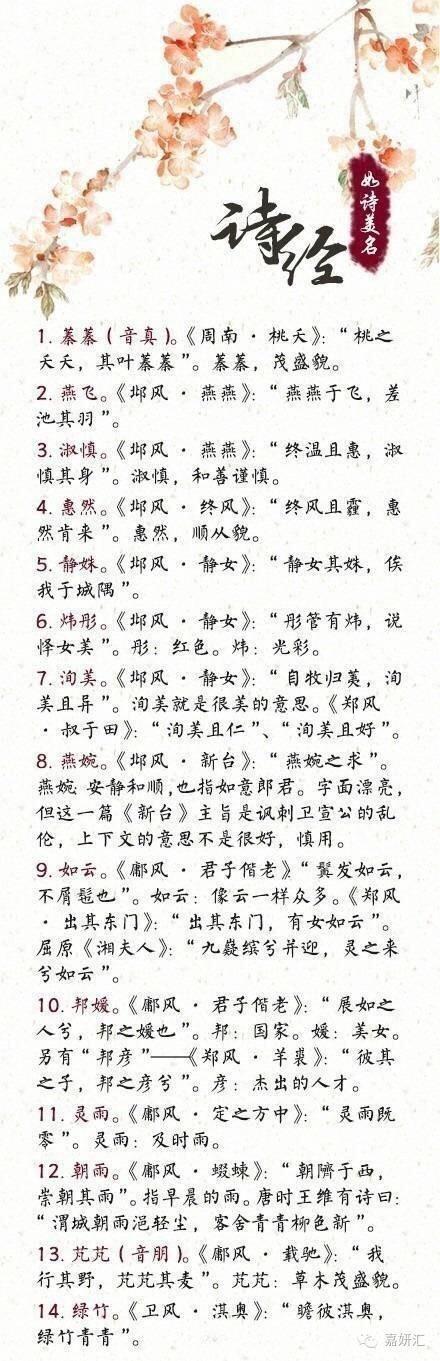 诗经
如诗美名
1. 蓁蓁(音真)。《周南·桃夭》：“桃之
夭夭，其叶蓁蓁”。蓁蓁，茂盛貌。
2. 燕飞。《邶风·燕燕》：“燕燕于飞，差
池其羽”。
3. 淑慎。《邶风·燕燕》：“终温且惠，淑
慎其身”。淑慎，和善谨慎。
4. 惠然。《邶风·终风》：“终风且霾，惠
然肯来”。惠然，顺从貌。
5. 静姝。《邶风·静女》：“静女其姝，俟
我于城隅”。
6. 炜彤。《邶风·静女》：“彤管有炜，说
怿女美”。彤：红色。炜：光彩。
7. 洵美。《邶风·静女》：“自牧归荑，洵
美且异”。洵美就是很美的意思。《郑风
·叔于田》：“洵美且仁”、“洵美且好”。
8. 燕婉。《邶风·新台》：“燕婉之求”。
燕婉 安静和顺，也指如意郎君。字面漂亮，
但这一篇《新台》主旨是讽刺卫宣公的乱
伦，上下文的意思不是很好，慎用。
9. 如云。《鄘风·君子偕老》“鬒发如云，
不屑髢也”。如云：像云一样众多。《郑风
·出其东门》：“出其东门，有女如云”。
屈原《湘夫人》：“九嶷缤兮并迎，灵之来
兮如云”。
10. 邦媛。《鄘风·君子偕老》：“展如之
人兮，邦之媛也”。邦：国家。媛：美女。
另有“邦彦”——《郑风·羊裘》：“彼其
之子，邦之彦兮”。彦：杰出的人才。
11. 灵雨。《鄘风·定之方中》：“灵雨既
零”。灵雨：及时雨。
12. 朝雨。《鄘风·蝃蝀》：“朝隮于西，
崇朝其雨”。指早晨的雨。唐时王维有诗曰：
“渭城朝雨浥轻尘，客舍青青柳色新”。
13. 芃芃(音朋)。《鄘风·载驰》：“我
行其野，芃芃其麦”。芃芃：草木茂盛貌。
14. 绿竹。《卫风·淇奥》：“瞻彼淇奥，
绿竹青青”。
嘉妍汇